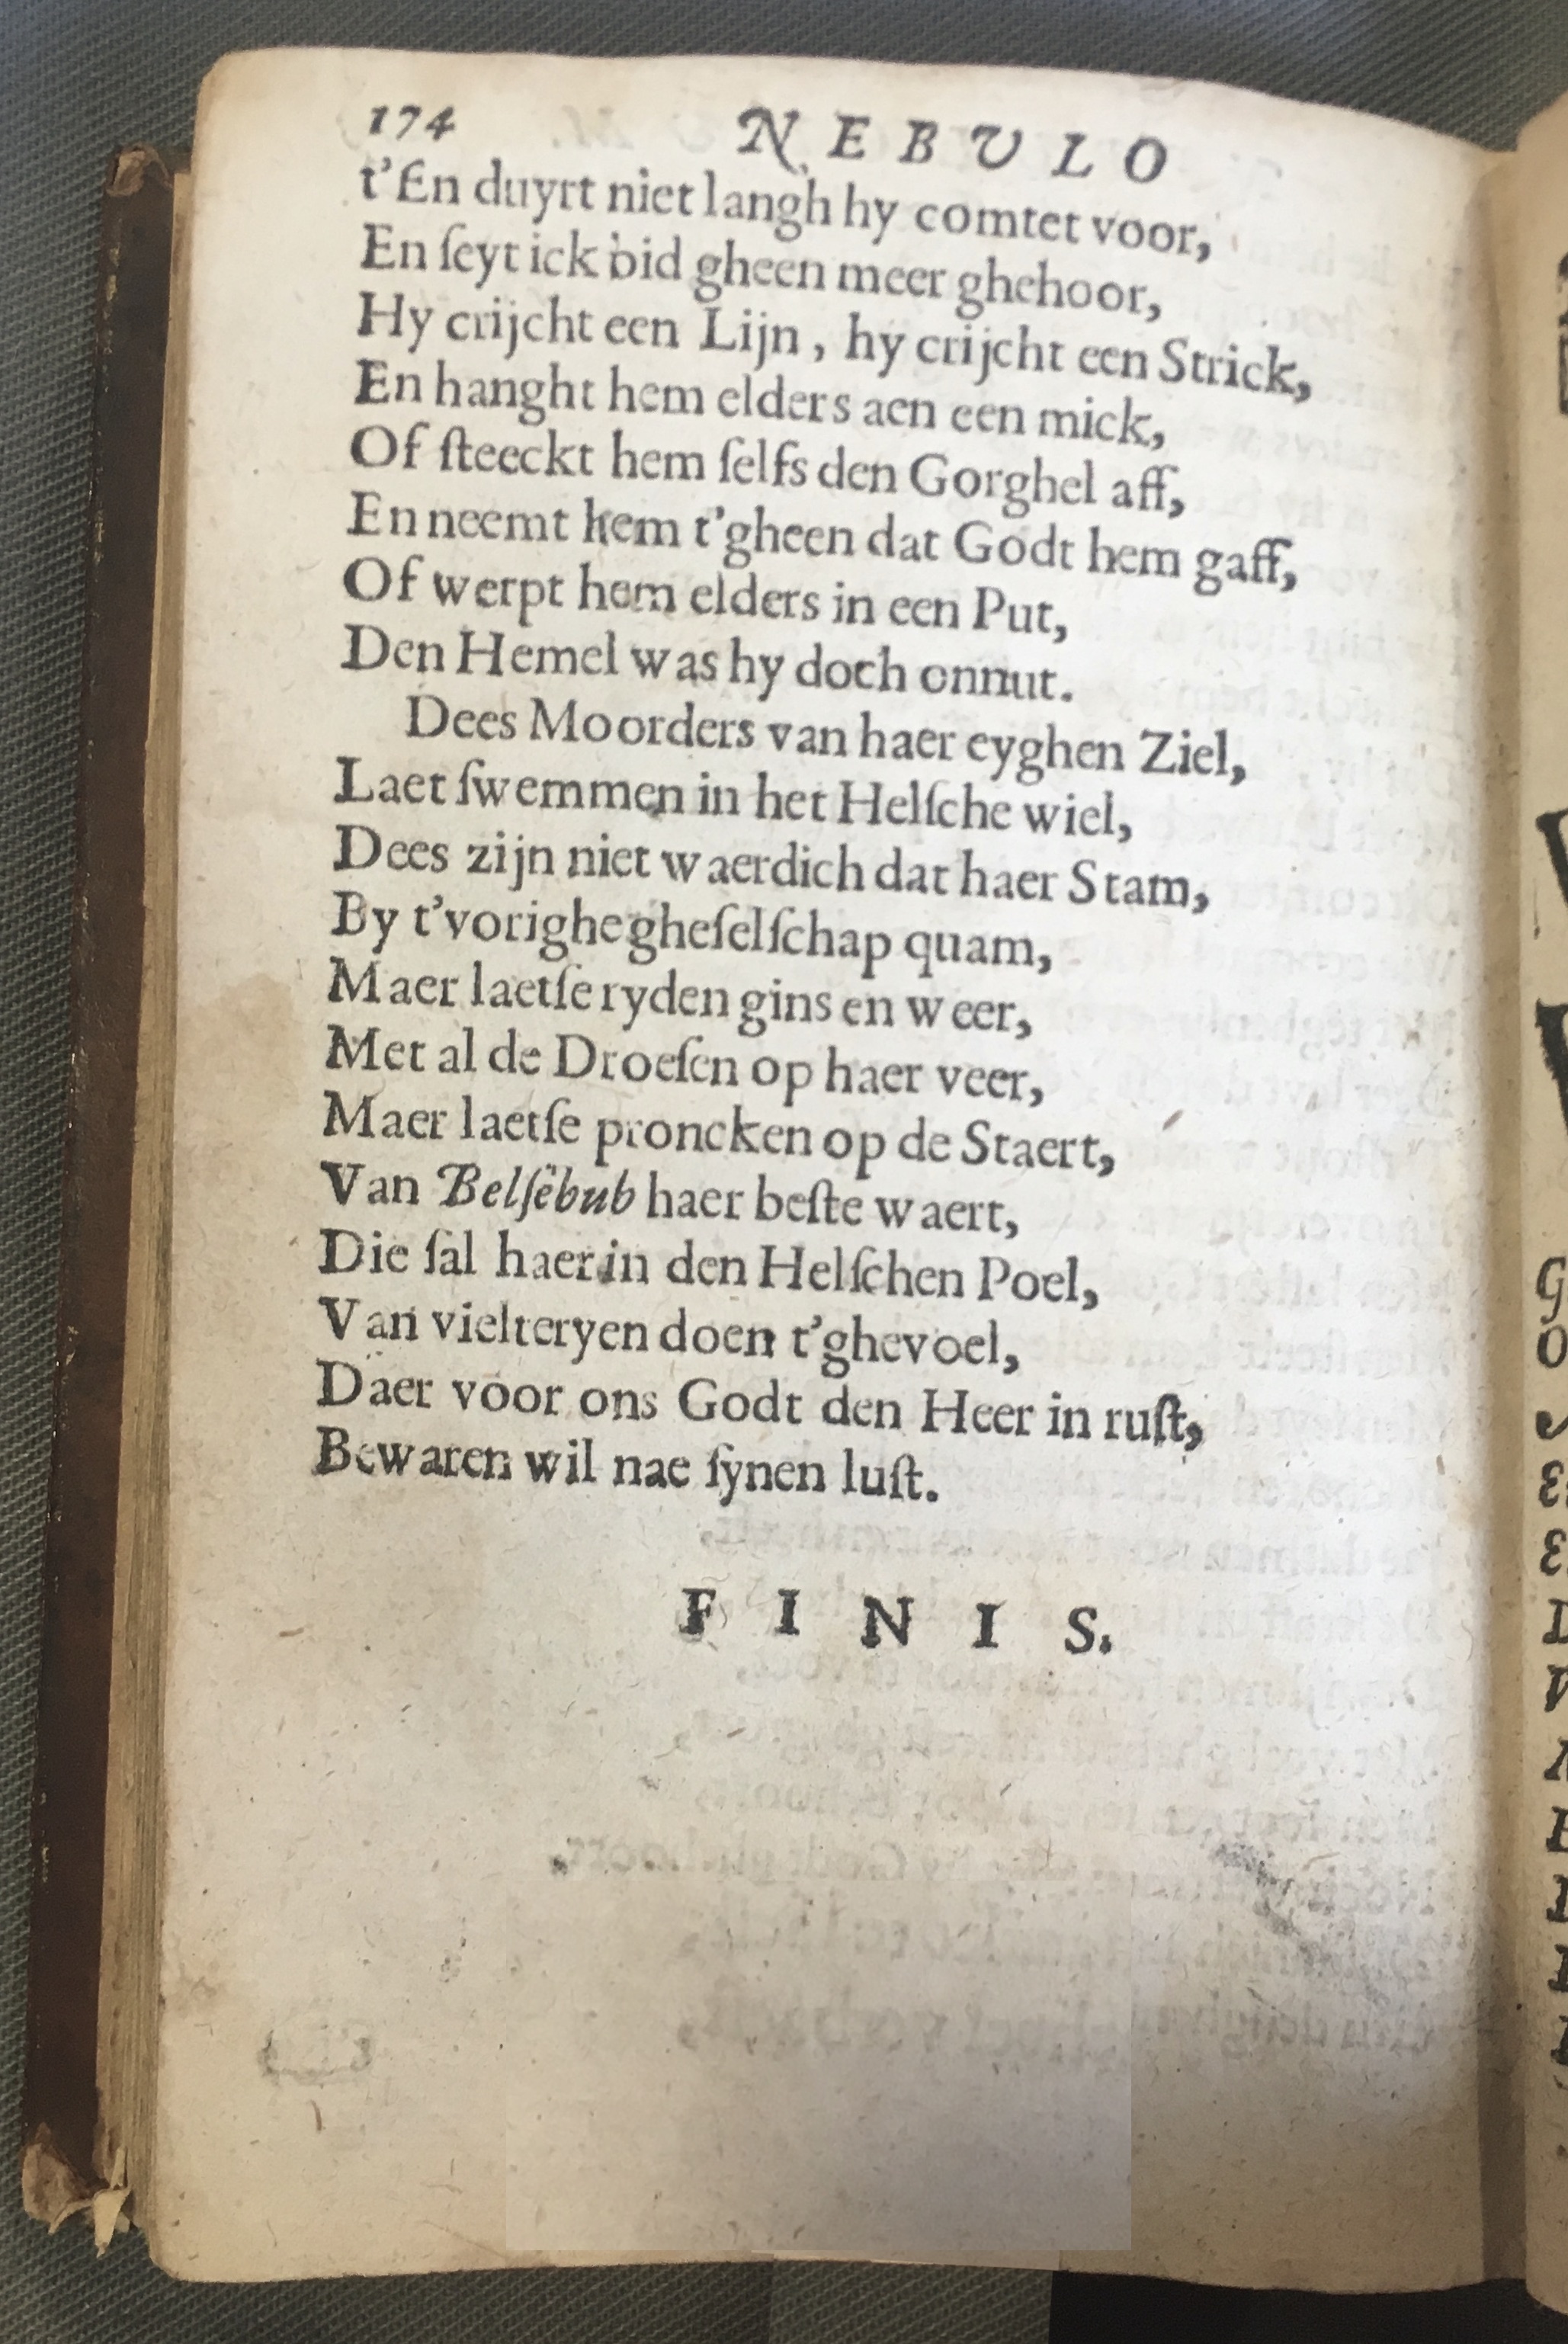 174 NEBULO
t'En duyrt niet langh hy comtet voor,
En ſeyt ick bid gheen meer ghehoor,
Hy crijcht een Lijn, hy crijcht een Strick,
En hanght hem elders aen een mick,
Of ſteeckt hem ſelfs den Gorghel aff,
En neemt hem t'gheen dat Godt hem gaff,
Of werpt hem elders in een Put,
Den Hemel was hy doch onnut.
Dees Moorders van haer eyghen Ziel,
Laet ſwemmen in het Helſche wiel,
Dees zijn niet waerdich dat haer Stam,
By t'vorighe gheſelſchap quam,
Maer laetſe ryden gins en weer,
Met al de Droeſen op haer veer,
Maer laetſe proncken op de Staert,
Van Belſebub haer beſte waert,
Die ſal haer in den Helſchen Poel,
Van vielteryen doen t'ghevoel,
Daer voor ons Godt den Heer in ruſt,
Bewaren wil nae ſynen luſt.
FINIS.